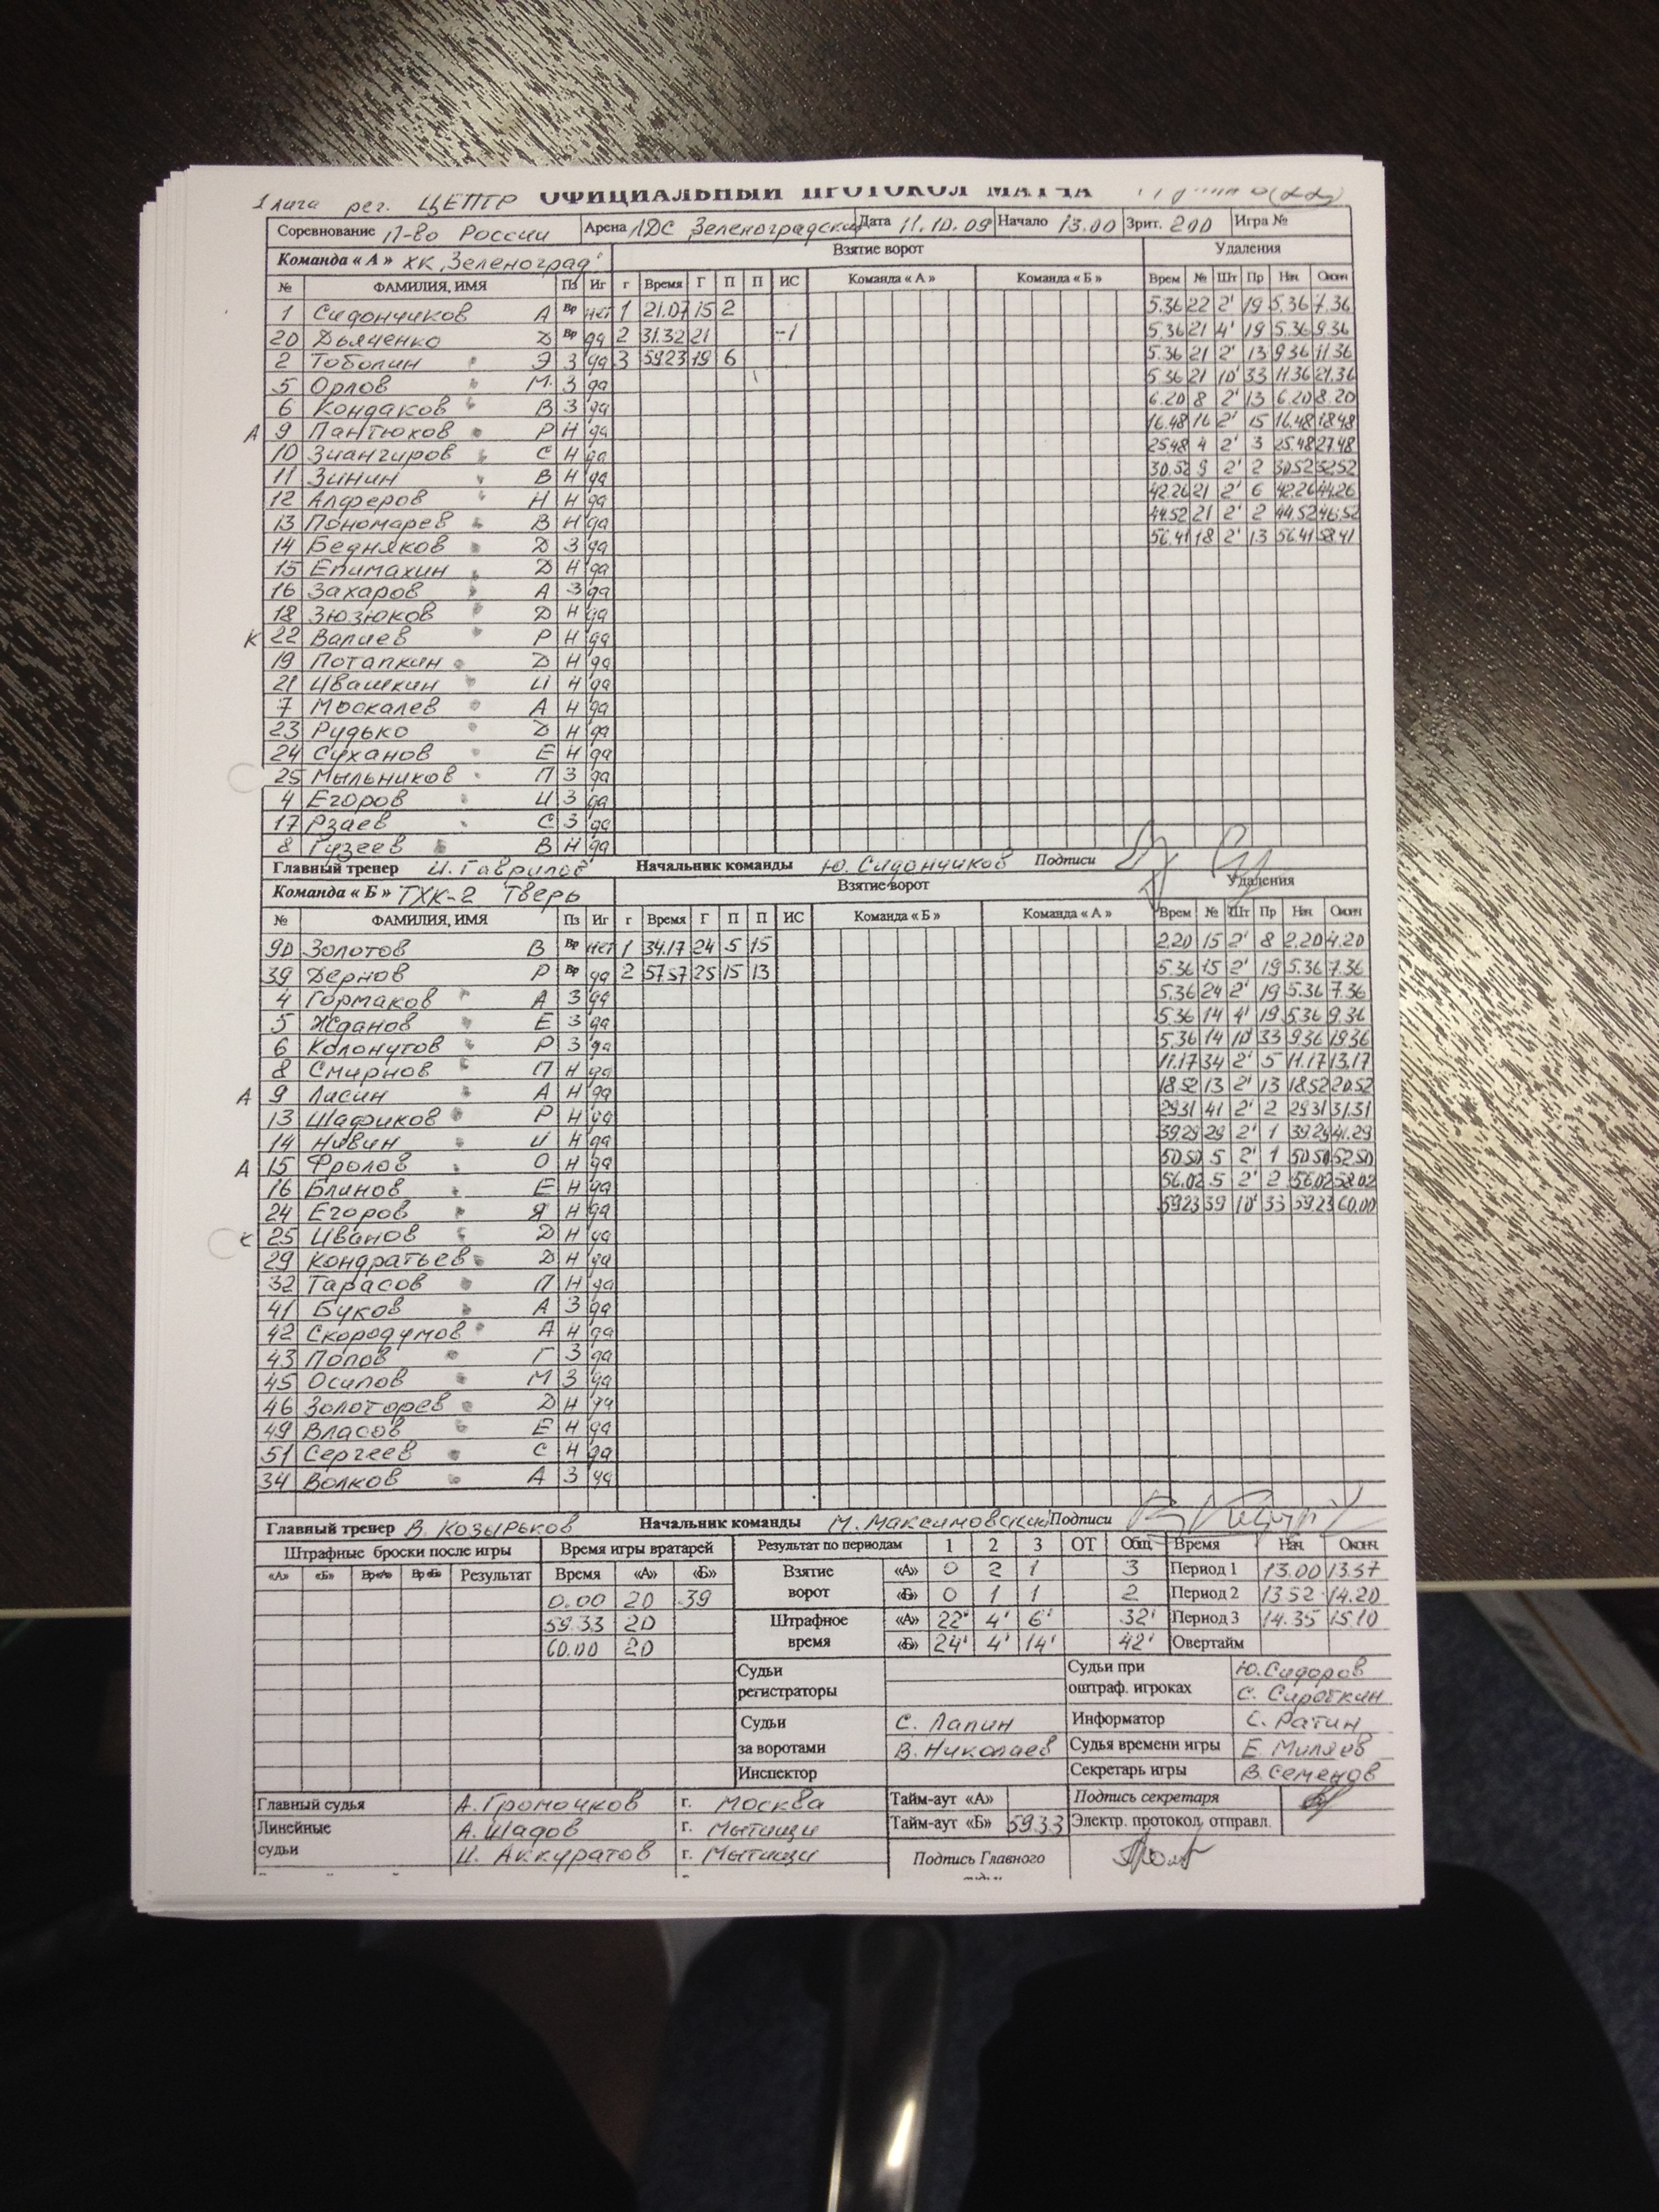 1 лига рег. ЦЕНТР ОФИЦИАЛЬНЫЙ ПРОТОКОЛ МАТЧА
Соревнование П-во России Арена ЛДС Зеленоградский Дата 11.10.09 Начало 13.00 Зрит. 200 Игра №
Команда « А » ХК „Зеленоград" Взятие ворот Удаления
№ ФАМИЛИЯ, ИМЯ Пз Иг г Время Г П П ИС Команда « А » Команда « Б » Врем № Шт Пр Нач. Оконч
1 Сидончиков А Вр нет 1 21.07 15 2 5.36 22 2' 19 5.36 7.36
20 Дьяченко Д Вр да 2 31.32 21 -1 5.36 21 4' 19 5.36 9.36
2 Тоболин Э З да 3 59.23 19 6 5.36 21 2' 13 9.36 11.36
5 Орлов М. З да 5.36 21 10' 33 11.36 21.36
6 Кондаков В З да 6.20 8 2' 13 6.20 8.20
А 9 Пантюхов Р Н да 16.48 16 2' 15 16.48 18.48
10 Зиангиров С Н да 25.48 4 2' 3 25.48 27.48
11 Зинин В Н да 30.52 9 2' 2 30.52 32.52
12 Алферов Н Н да 42.26 21 2' 6 42.26 44.26
13 Пономарев В Н да 44.52 21 2' 2 44.52 46.52
14 Бедняков Д З да 56.41 18 2' 13 56.41 58.41
15 Епимахин Д Н да
16 Захаров А З да
18 Зюзюков Д Н да
К 22 Валиев Р Н да
19 Потапкин Д Н да
21 Ивашкин И Н да
7 Москалев А Н да
23 Рудько Д Н да
24 Суханов Е Н да
25 Мыльников П З да
4 Егоров И З да
17 Рзаев С З да
8 Гузеев В Н да
Главный тренер И. Гаврилов Начальник команды Ю. Сидончиков Подписи
Команда « Б » ТХК-2 Тверь Взятие ворот Удаления
№ ФАМИЛИЯ, ИМЯ Пз Иг г Время Г П П ИС Команда « Б » Команда « А » Врем № Шт Пр Нач. Оконч
90 Золотов В Вр нет 1 34.17 24 5 15 2.20 15 2' 8 2.20 4.20
39 Дернов Р Вр да 2 57.57 25 15 13 5.36 15 2' 19 5.36 7.36
4 Гормаков А З да 5.36 24 2' 19 5.36 7.36
5 Жданов Е З да 5.36 14 4' 19 5.36 9.36
6 Колонутов Р З да 5.36 14 10' 33 9.36 19.36
8 Смирнов П Н да 11.17 34 2' 5 11.17 13.17
А 9 Лисин А Н да 18.52 13 2' 13 18.52 20.52
13 Шафиков Р Н да 29.31 41 2' 2 29.31 31.31
14 Нивин И Н да 39.29 29 2' 1 39.29 41.29
А 15 Фролов О Н да 50.50 5 2' 1 50.50 52.50
16 Блинов Е Н да 56.02 5 2' 2 56.02 58.02
24 Егоров Я Н да 59.23 39 10' 33 59.23 60.00
К 25 Иванов Д Н да
29 Кондратьев Д Н да
32 Тарасов П Н да
41 Буков А З да
42 Скородумов А Н да
43 Попов Г З да
45 Осипов М З да
46 Золоторев Д Н да
49 Власов Е Н да
51 Сергеев С Н да
34 Волков А З да
Главный тренер В. Козырьков Начальник команды М. Максимовский Подписи
Штрафные броски после игры Время игры вратарей Результат по периодам 1 2 3 ОТ Общ Время Нач. Оконч.
«А» «Б» Вр«А» Вр«Б» Результат Время «А» «Б» Взятие ворот «А» 0 2 1 3 Период 1 13.00 13.37
0.00 20 39 «Б» 0 1 1 2 Период 2 13.52 14.20
59.33 20 Штрафное время «А» 22' 4' 6' 32' Период 3 14.35 15.10
60.00 20 «Б» 24' 4' 14' 42' Овертайм
Судьи регистраторы Судьи при оштраф. игроках Ю. Сидоров
С. Сироткин
Судьи за воротами С. Лапин Информатор С. Ратин
В. Николаев Судья времени игры Е. Миляев
Инспектор Секретарь игры В. Семенов
Главный судья А. Громочков г. Москва Тайм-аут «А» Подпись секретаря
Линейные А. Шадов г. Мытищи Тайм-аут «Б» 59.33 Электр. протокол. отправл.
судьи И. Аккуратов г. Мытищи Подпись Главного